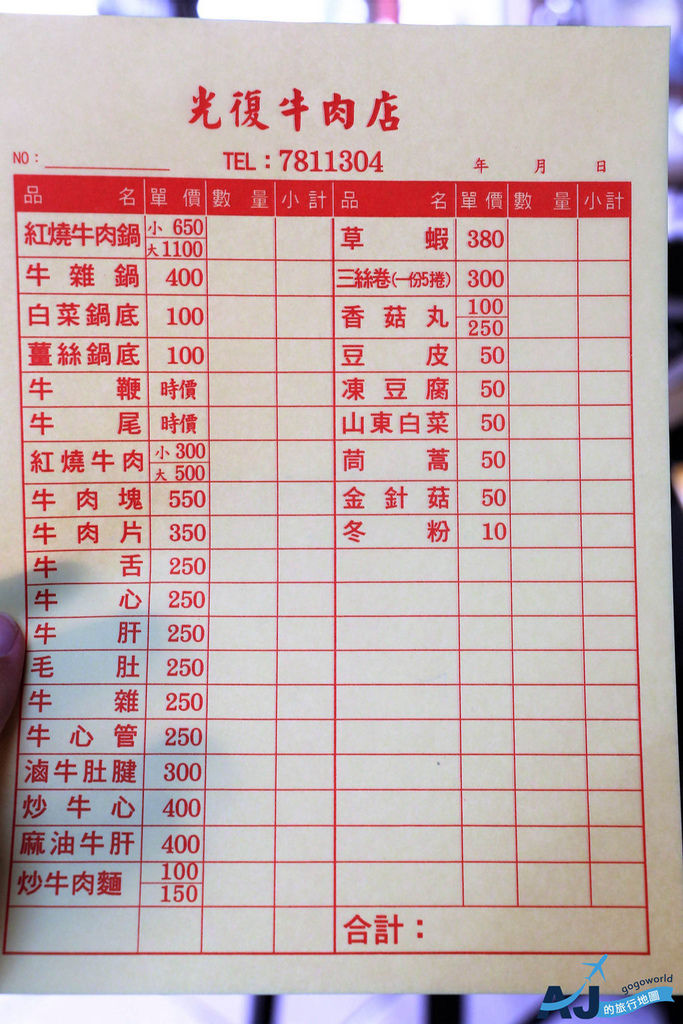 光復牛肉店
NO：
TEL：7811304
年 月 日
品名 單價 數量 小計 品名 單價 數量 小計
紅燒牛肉鍋 小 650 大 1100 草蝦 380
牛雜鍋 400 三絲卷(一份5捲) 300
白菜鍋底 100 香菇丸 100 250
薑絲鍋底 100 豆皮 50
牛鞭 時價 凍豆腐 50
牛尾 時價 山東白菜 50
紅燒牛肉 小 300 大 500 茼蒿 50
牛肉塊 550 金針菇 50
牛肉片 350 冬粉 10
牛舌 250
牛心 250
牛肝 250
毛肚 250
牛雜 250
牛心管 250
滷牛肚腱 300
炒牛心 400
麻油牛肝 400
炒牛肉麵 100 150
合計：
gogoworld
AJ的旅行地圖